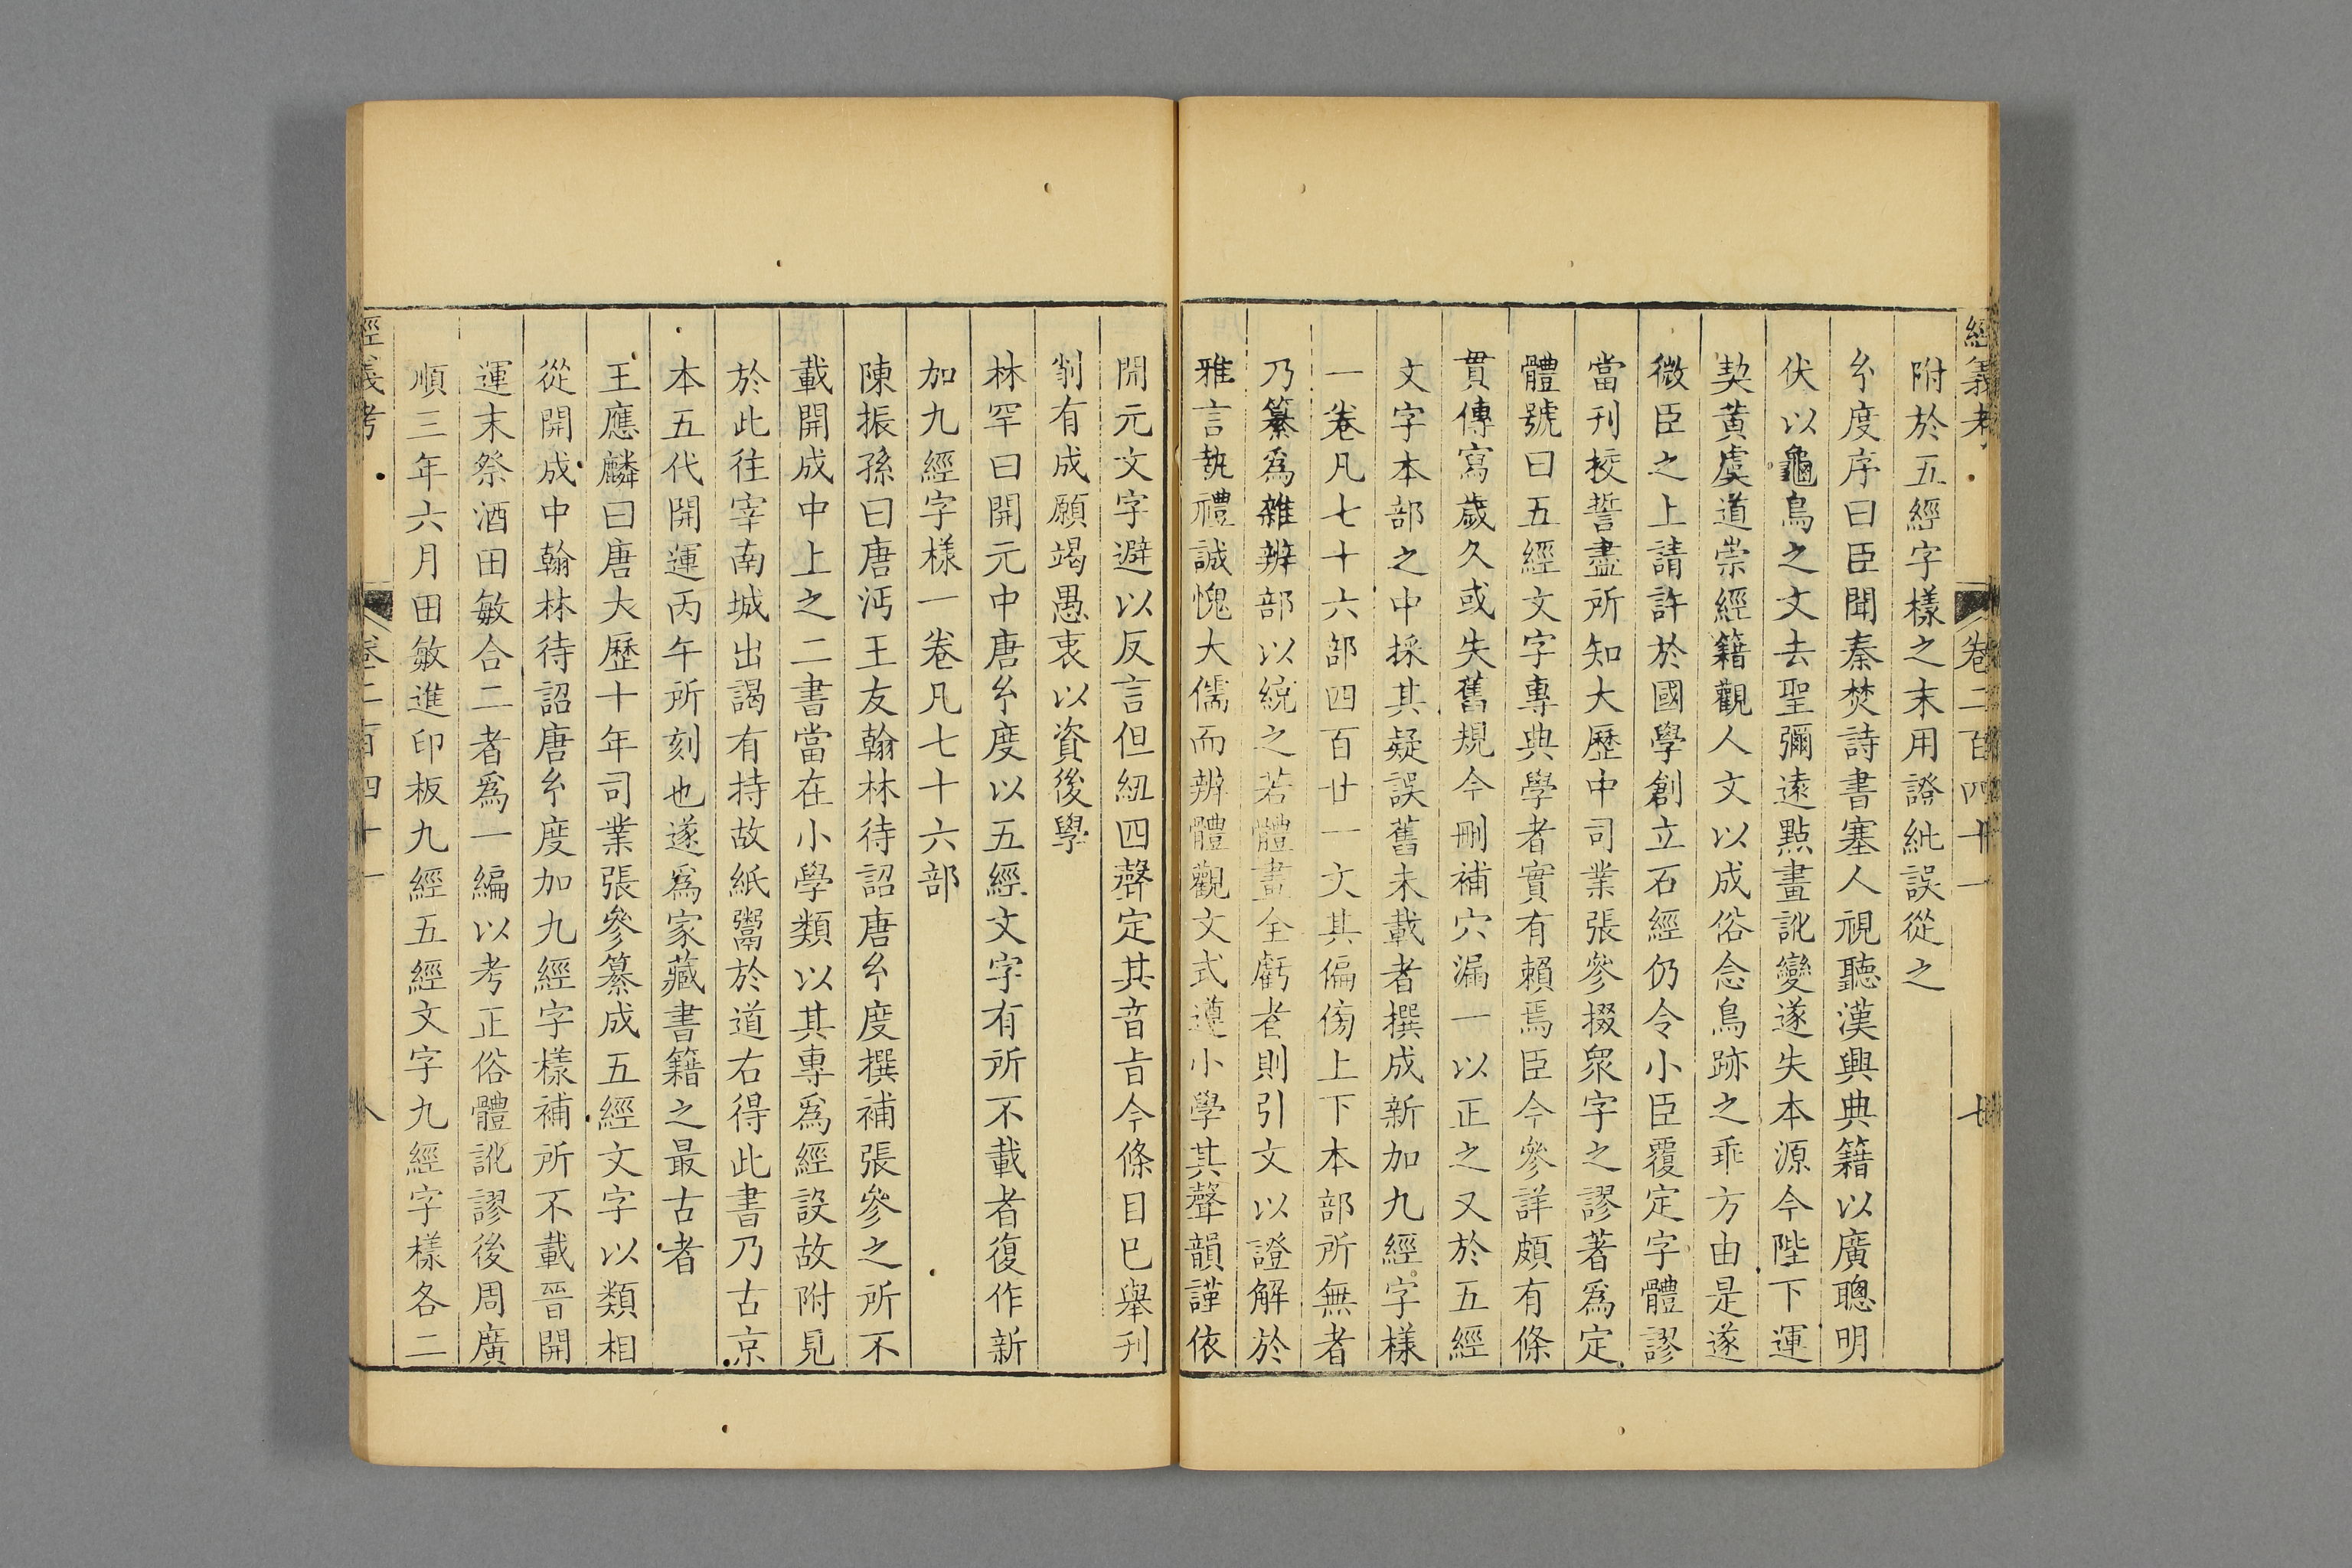 經義考
卷二百四十一
七
附於五經字樣之末用證紕誤從之
𤣥度序曰臣聞秦焚詩書塞人視聽漢興典籍以廣聰明
伏以龜鳥之文去聖彌遠點畫訛變遂失本源今陛下運
契黃虞道崇經籍觀人文以成俗念鳥跡之乖方由是遂
微臣之上請許於國學創立石經仍令小臣覆定字體謬
當刊挍誓盡所知大歷中司業張參掇衆字之謬著爲定
體號曰五經文字專典學者實有賴焉臣今參詳頗有條
貫傳寫歲久或失舊規今刪補穴漏一以正之又於五經
文字本部之中採其疑誤舊未載者撰成新加九經字樣
一卷凡七十六部四百廿一文其偏傍上下本部所無者
乃纂爲雜辨部以統之若體畫全虧者則引文以證解於
雅言執禮誠愧大儒而辨體觀文式遵小學其聲韻謹依
開元文字避以反言但紐四聲定其音旨今條目已舉刊
削有成願竭愚衷以資後學
林罕曰開元中唐𤣥度以五經文字有所不載者復作新
加九經字樣一卷凡七十六部
陳振孫曰唐沔王友翰林待詔唐𤣥度撰補張參之所不
載開成中上之二書當在小學類以其專爲經設故附見
於此往宰南城出謁有持故紙鬻於道右得此書乃古京
本五代開運丙午所刻也遂爲家藏書籍之最古者
王應麟曰唐大歷十年司業張參纂成五經文字以類相
從開成中翰林待詔唐𤣥度加九經字樣補所不載晉開
運末祭酒田敏合二者爲一編以考正俗體訛謬後周廣
順三年六月田敏進印板九經五經文字九經字樣各二
經義考
卷二百四十一
八